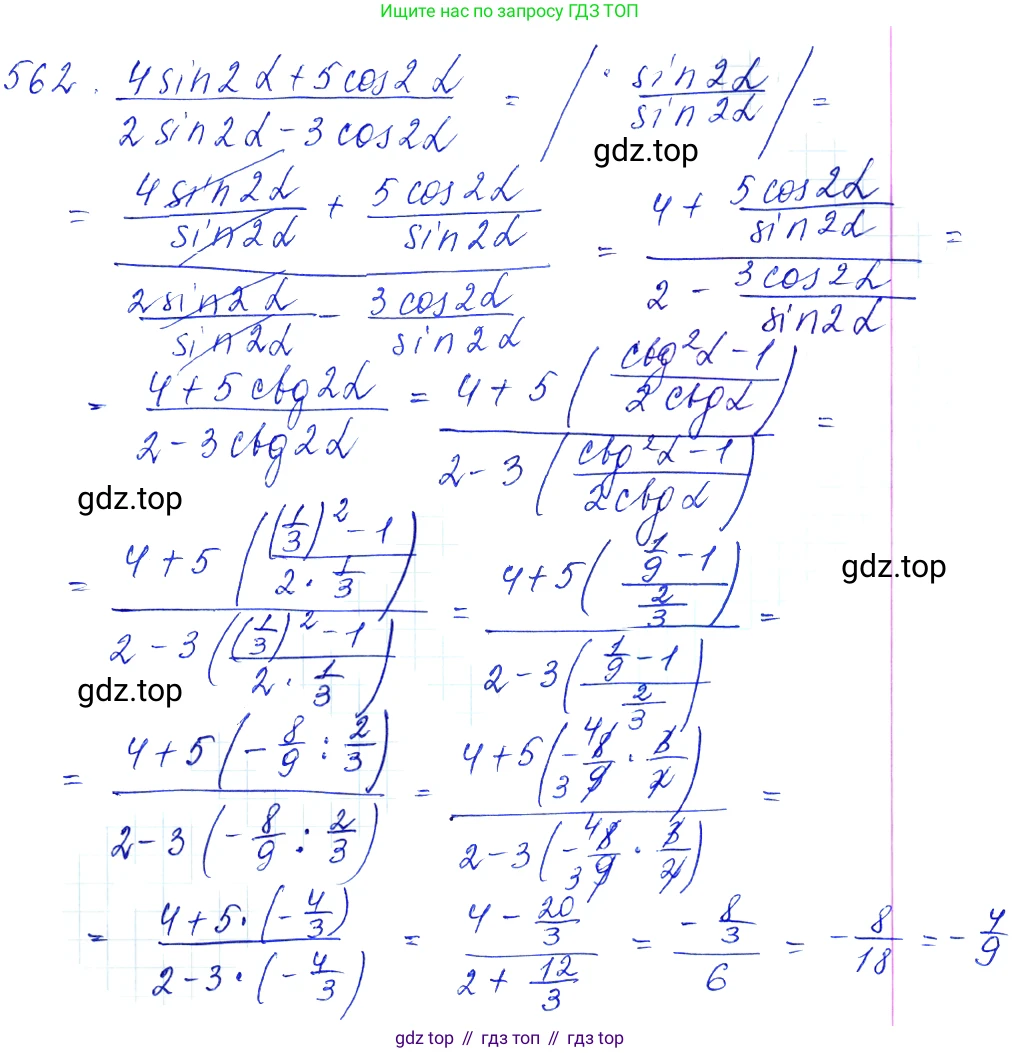 Ищите нас по запросу ГДЗ ТОП
562. (4 sin2α + 5 cos2α)/(2 sin2α - 3 cos2α) = | · sin2α/sin2α | =
gdz.top
= (4 sin2α/sin2α + 5 cos2α/sin2α)/(2 sin2α/sin2α - 3 cos2α/sin2α) = (4 + 5 cos2α/sin2α)/(2 - 3 cos2α/sin2α) =
= (4 + 5 ctg2α)/(2 - 3 ctg2α) = (4 + 5 ((ctg²α - 1)/(2 ctgα)))/(2 - 3 ((ctg²α - 1)/(2 ctgα))) =
gdz.top
= (4 + 5 (((1/3)² - 1)/(2 · 1/3)))/(2 - 3 (((1/3)² - 1)/(2 · 1/3))) = (4 + 5 ((1/9 - 1)/(2/3)))/(2 - 3 ((1/9 - 1)/(2/3))) =
gdz.top
gdz.top
= (4 + 5 (-8/9 : 2/3))/(2 - 3 (-8/9 : 2/3)) = (4 + 5 (-8/9 · 3/2))/(2 - 3 (-8/9 · 3/2)) =
= (4 + 5 · (-4/3))/(2 - 3 · (-4/3)) = (4 - 20/3)/(2 + 12/3) = (-8/3)/6 = -8/18 = -4/9
gdz.top // гдз топ // гдз.топ